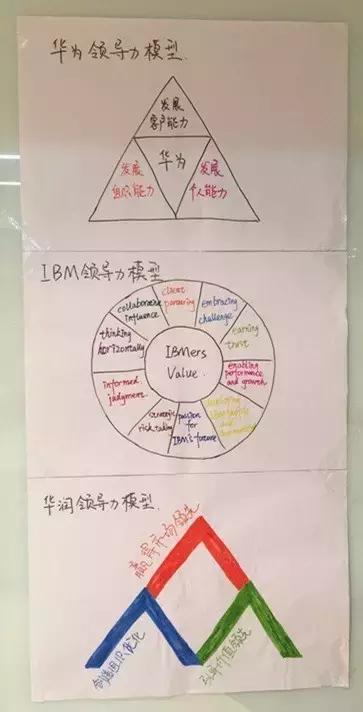 华为领导力模型.
发展
客户能力
发展
组织能力
华为
发展
个人能力
IBM领导力模型
client
partnering
embracing
challenge
earning
trust
enabling
performance
and growth
passion
for
IBM's future
strategic
risk taking
informed
judgment
thinking
horizontally
collaborative
influence
IBMers
Value.
华润领导力模型.
赢得市场领先
创造组织优化